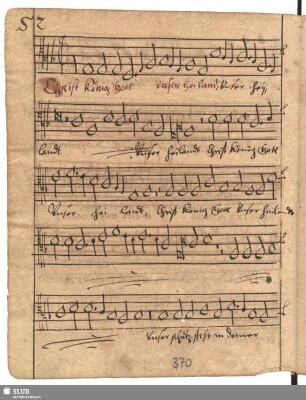 52
Christ König Gott unser Heiland, Unser Hei,
landt Unser Heilandt Christ König Gott
Unser Hei landt, Christ König Gott Unser Heilandt
Unser schutz steht in deiner
370
SLUB